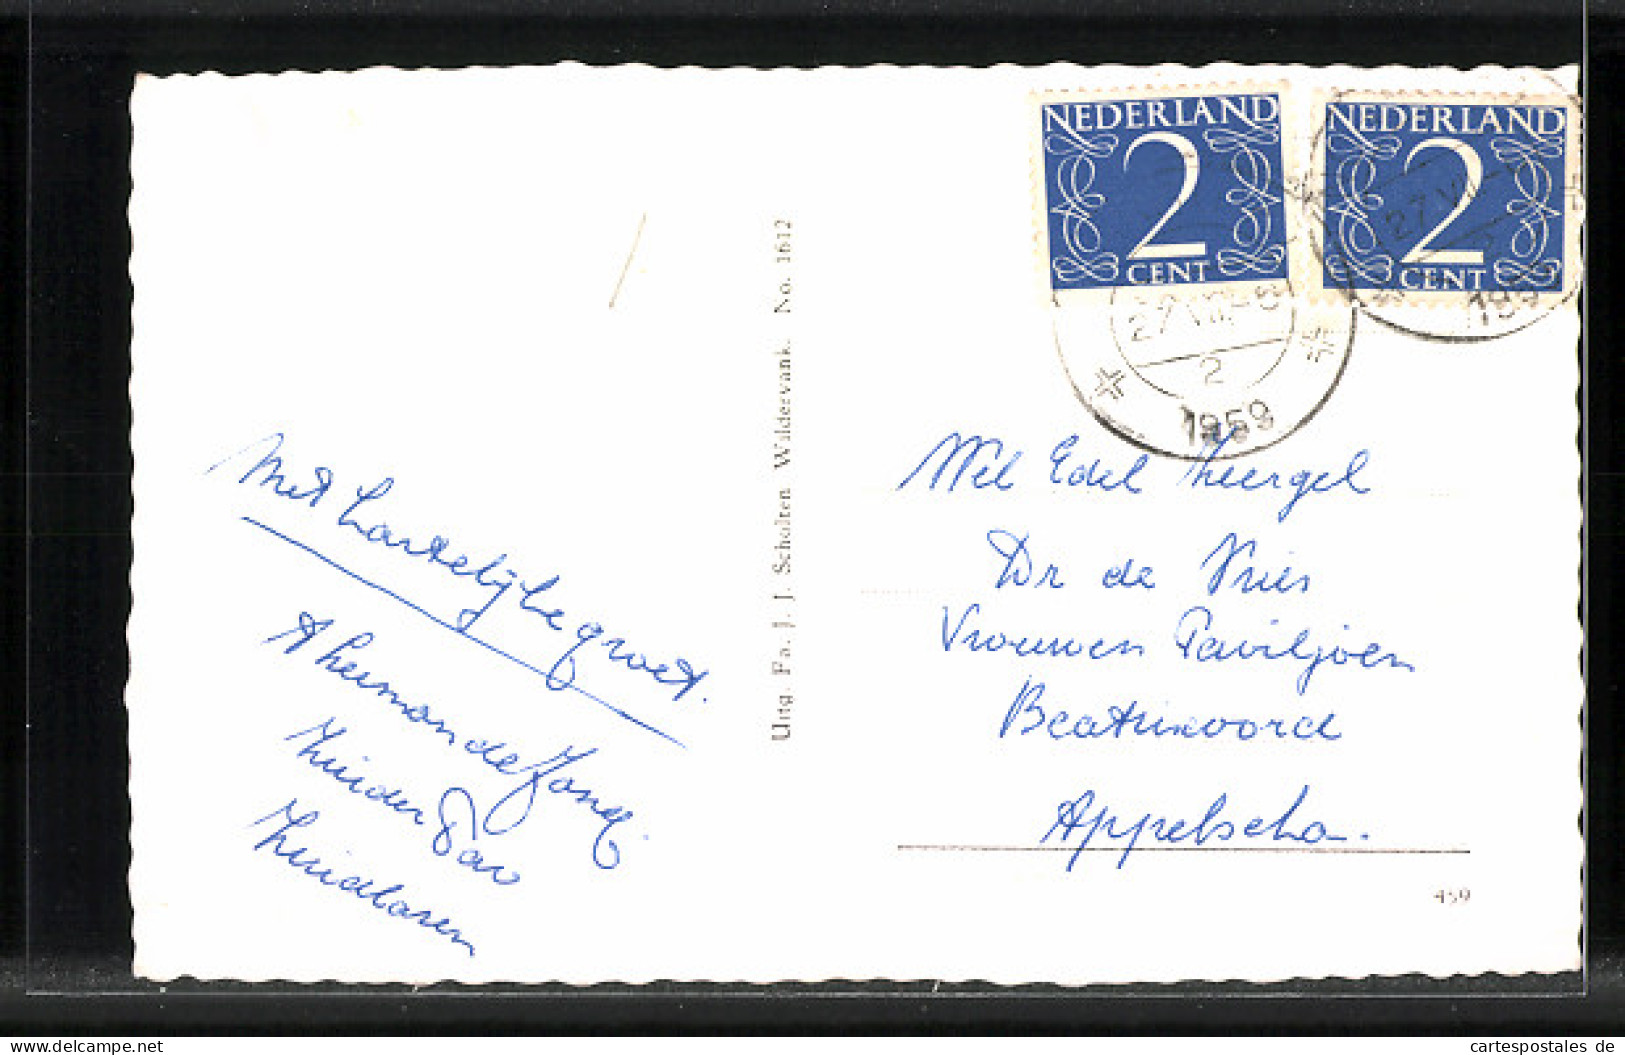 NEDERLAND
2
CENT
NEDERLAND
2
CENT
27 VII
2
1959
27 VII
195
Met hartelijke groet.
A Heiman de Jong.
Zuider Pav
Zuidlaren
Uitg. Fa. J. J. Scholten Wildervank. No. 1612
Wel Edel Zeergel
Dr de Vries
Vrouwen Paviljoen
Beatrixoord
Appelscha.
459
cartespostales de
www.delcampe.net